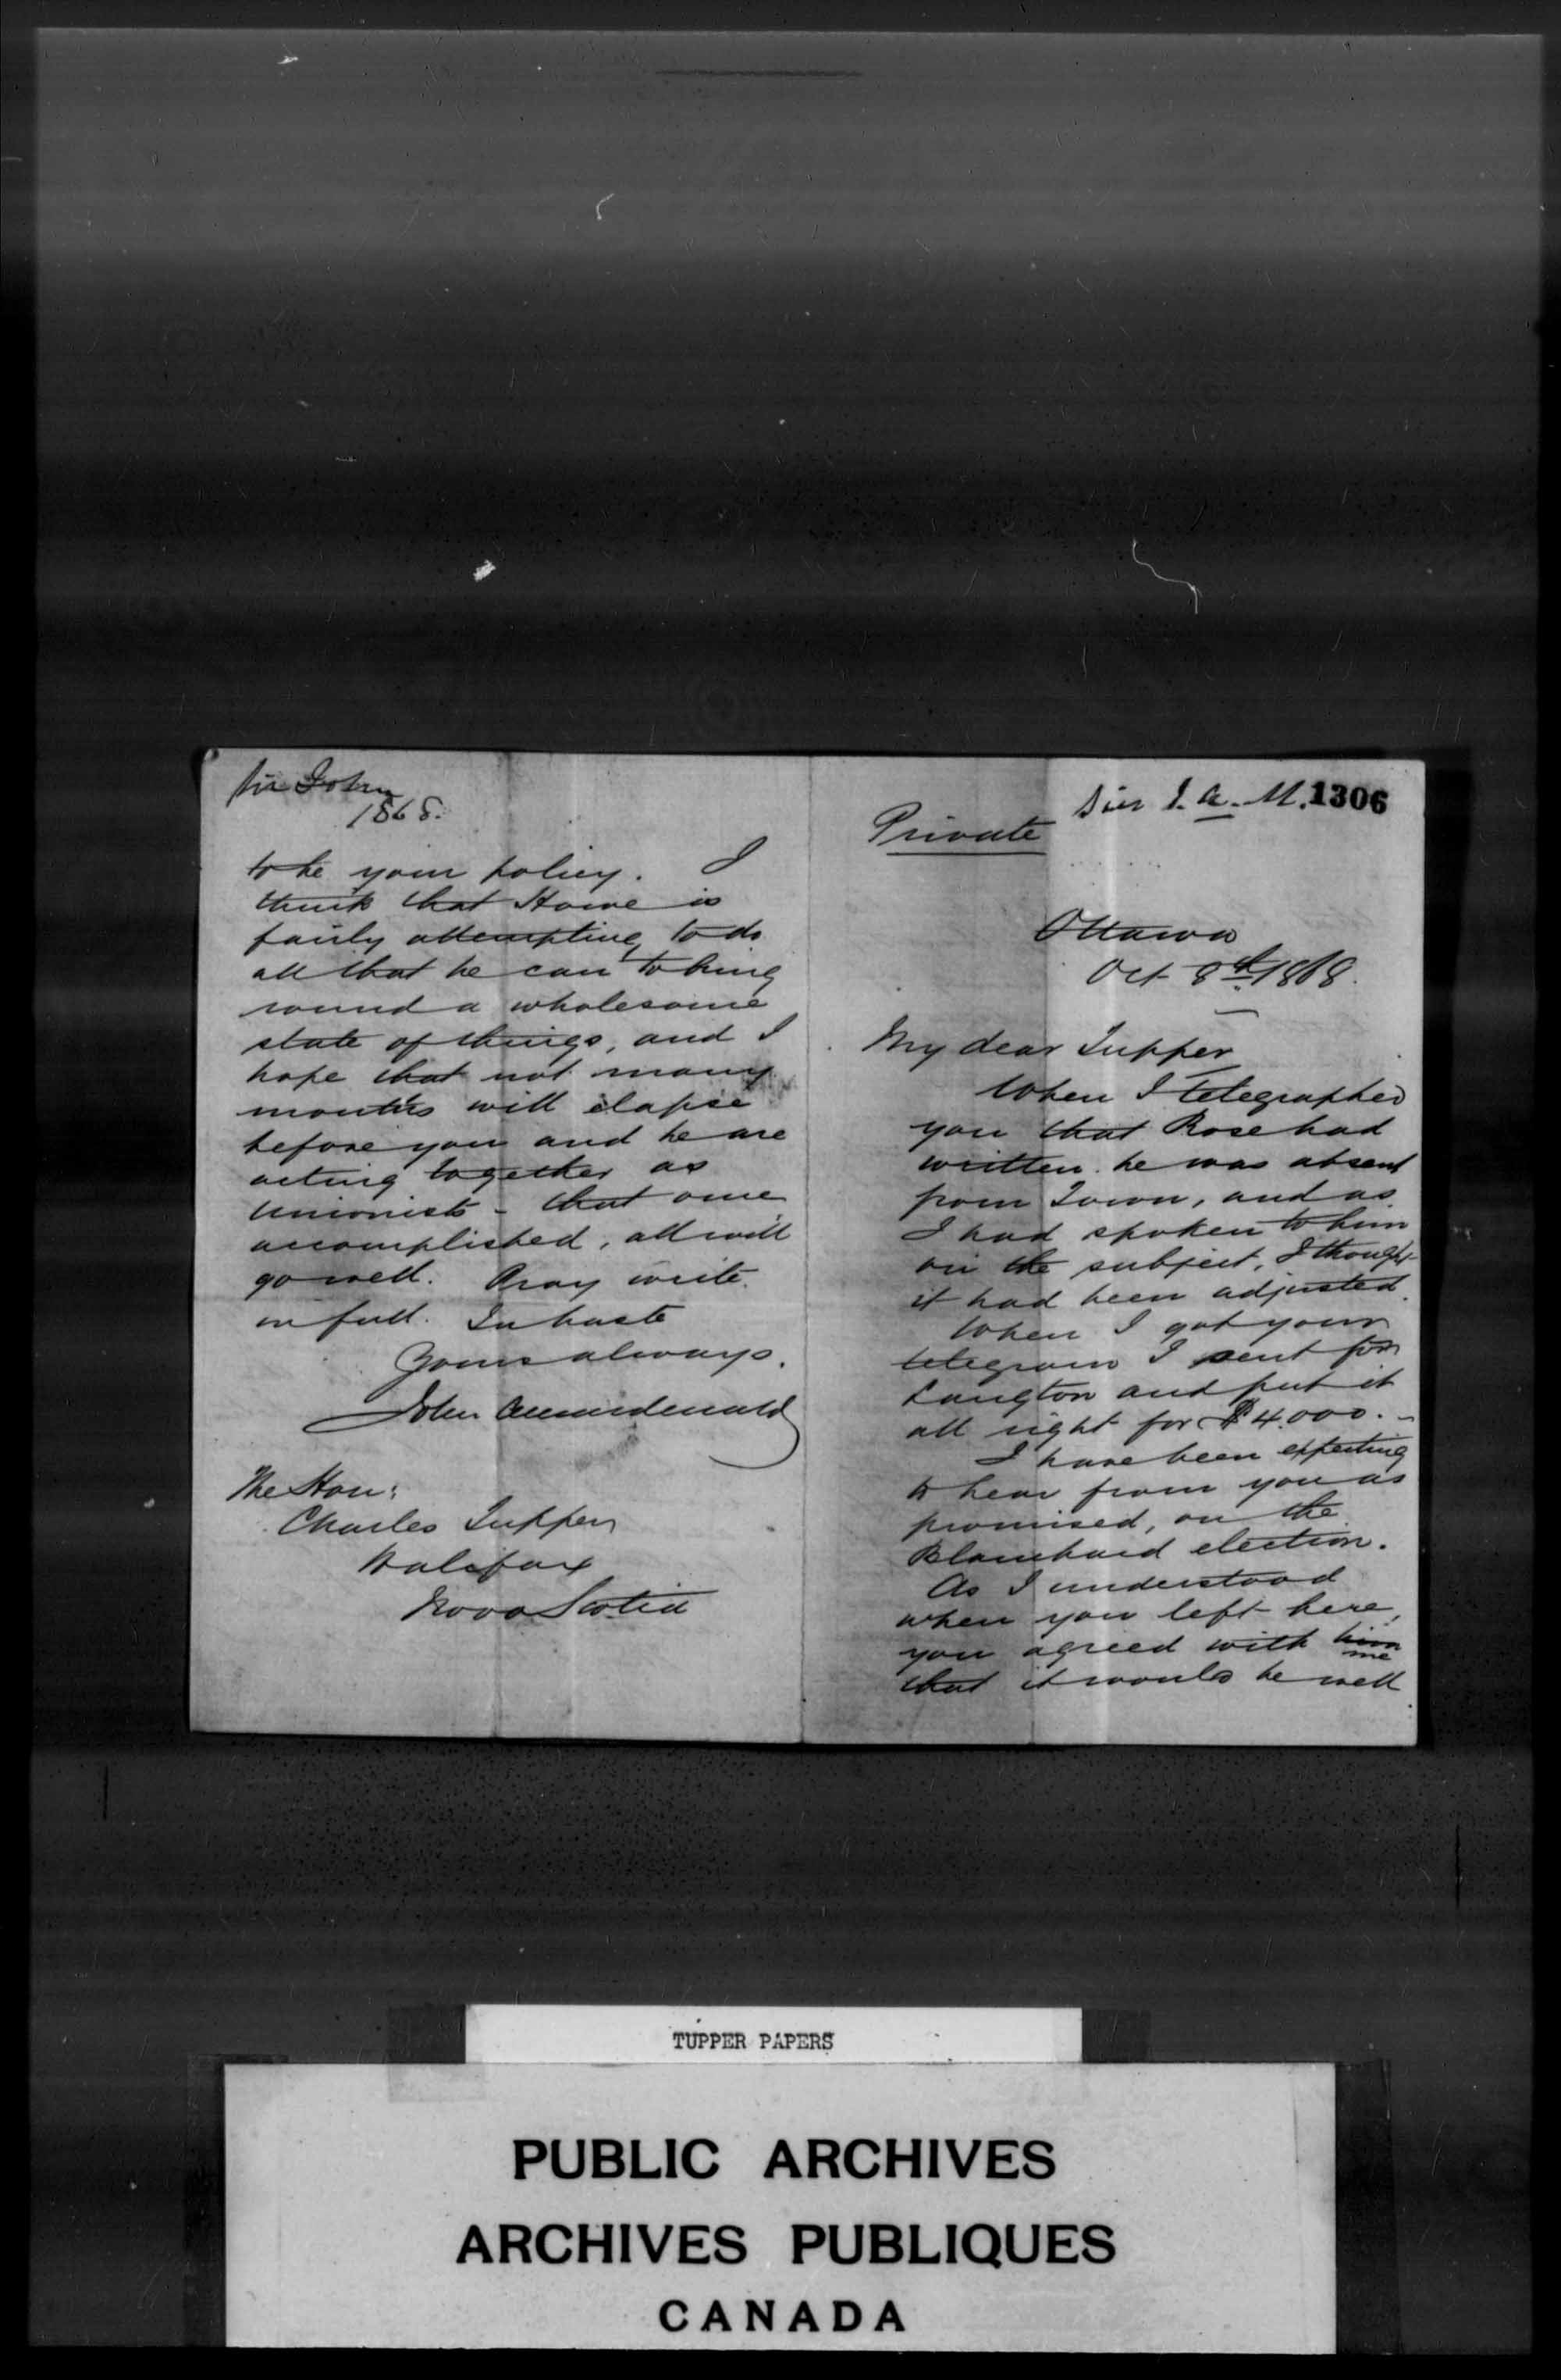 Sir John
1868.
to be your policy. I
think that Howe is
fairly attempting to do
all that he can to bring
round a wholesome
state of things, and I
hope that not many
months will elapse
before you and he are
acting together as
Unionists - that once
accomplished, all will
go well. Pray write
in full. In haste
Yours always.
John A Macdonald
The Hon:
Charles Tupper
Halifax
Nova Scotia
Sir J. A. M. 1306
Private
Ottawa
Oct 8th 1868.
My dear Tupper
When I telegraphed
you that Rose had
written he was absent
from Town, and as
I had spoken to him
on the subject, I thought
it had been adjusted.
When I got your
telegram I sent for
Langton and put it
all right for $4.000. -
I have been expecting
to hear from you as
promised, on the
Blanchard election.
As I understood
when you left here,
you agreed with him me
that it would be well
TUPPER PAPERS
PUBLIC ARCHIVES
ARCHIVES PUBLIQUES
CANADA